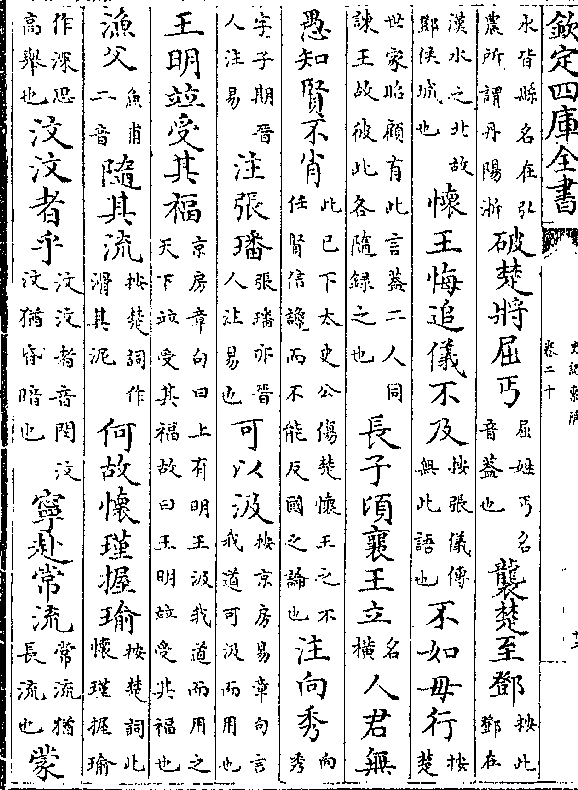 欽定四庫全書
史記索隱
卷二十
永皆縣名在弘農所謂丹陽淅破楚將屈丐屈姓丐名音蓋也襲楚至鄧按此鄧在
漢水之北故鄧侯城也懷王悔追儀不及按張儀傳無此語也不如毋行按楚
世家昭顧有此言蓋二人同諫王故彼此各隨録之也長子頃襄王立名橫人君無
愚知賢不肖此已下太史公傷楚懷王之不任賢信讒而不能反國之論也注向秀向秀
字子期晉人注易注張璠張璠亦晉人注易也可以汲按京房易章句言我道可汲而用也
王明並受其福京房章句曰上有明王汲我道而用之天下並受其福故曰王明並受其福也
漁父魚甫二音隨其流按楚詞作滑其泥何故懷瑾握瑜按楚詞此懷瑾握瑜
作深思高舉也汶汶者乎汶汶者音閔汶汶猶昏暗也寧赴常流常流猶長流也蒙